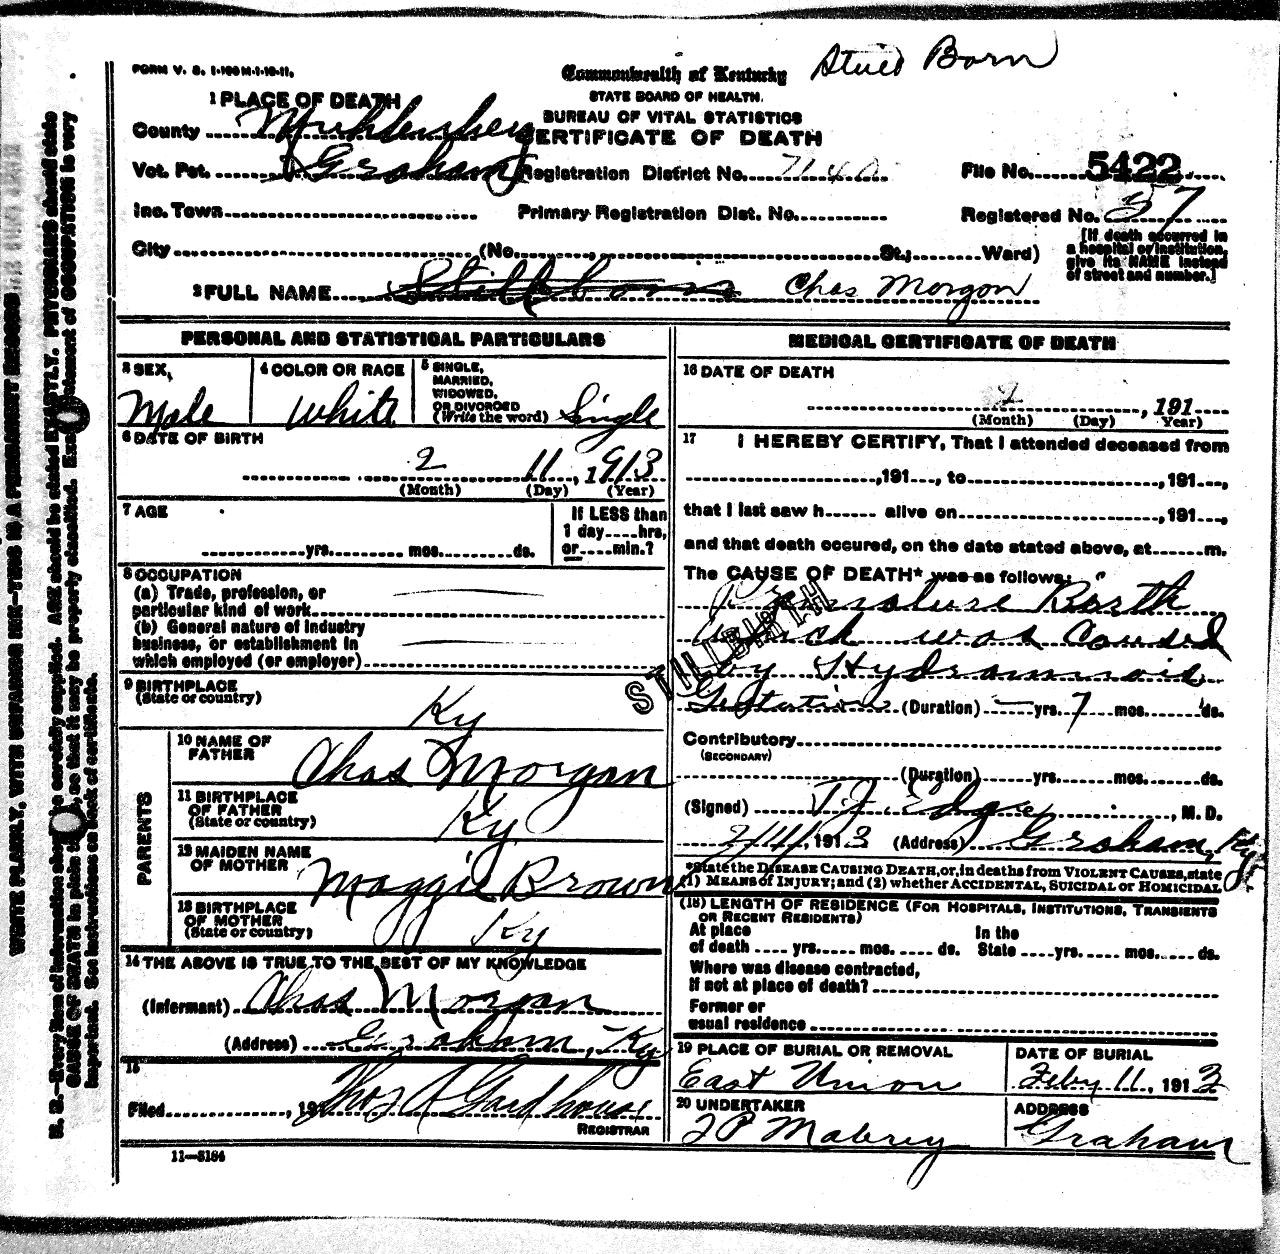 Still Born
FORM V. S. 1-100M-1-10-11.
Commonwealth of Kentucky
STATE BOARD OF HEALTH.
BUREAU OF VITAL STATISTICS
CERTIFICATE OF DEATH
1 PLACE OF DEATH
County Muhlenberg
Vot. Pct. Graham Registration District No. 7140 File No. 5422
Inc. Town Primary Registration Dist. No. Registered No. 57
City (No. , St.; Ward) [If death occurred in a hospital or institution, give its NAME instead of street and number.]
2 FULL NAME Stillborn Chas Morgan
PERSONAL AND STATISTICAL PARTICULARS
3 SEX, 4 COLOR OR RACE 5 SINGLE, MARRIED, WIDOWED, OR DIVORCED (Write the word)
Male White Single
6 DATE OF BIRTH
2 11, 1913
(Month) (Day) (Year)
7 AGE If LESS than 1 day hrs, or min.?
yrs. mos. ds.
8 OCCUPATION
(a) Trade, profession, or
particular kind of work
(b) General nature of industry
business, or establishment in
which employed (or employer)
9 BIRTHPLACE
(State or country) Ky
PARENTS
10 NAME OF FATHER Chas Morgan
11 BIRTHPLACE OF FATHER (State or country) Ky
12 MAIDEN NAME OF MOTHER Maggie Brown
13 BIRTHPLACE OF MOTHER (State or country) Ky
14 THE ABOVE IS TRUE TO THE BEST OF MY KNOWLEDGE
(Informant) Chas Morgan
(Address) Graham, Ky
15
Filed , 191 Thos Gardhouse
REGISTRAR
11—5184
MEDICAL CERTIFICATE OF DEATH
16 DATE OF DEATH
2 , 191
(Month) (Day) (Year)
17 I HEREBY CERTIFY, That I attended deceased from
, 191 , to , 191 ,
that I last saw h alive on , 191 ,
and that death occured, on the date stated above, at m.
The CAUSE OF DEATH* was as follows:
Premature Borth
which was caused
by Hydramnois
STILLBIRTH
Gestation (Duration) — yrs. 7 mos. ds.
Contributory
(SECONDARY)
(Duration) yrs. mos. ds.
(Signed) T J Edge , M. D.
2/11, 1913 (Address) Graham, Ky
*State the DISEASE CAUSING DEATH, or, in deaths from VIOLENT CAUSES, state
(1) MEANS of INJURY; and (2) whether ACCIDENTAL, SUICIDAL or HOMICIDAL
(18) LENGTH OF RESIDENCE (FOR HOSPITALS, INSTITUTIONS, TRANSIENTS
OR RECENT RESIDENTS)
At place In the
of death yrs. mos. ds. State yrs. mos. ds.
Where was disease contracted,
If not at place of death?
Former or
usual residence
19 PLACE OF BURIAL OR REMOVAL DATE OF BURIAL
East Union Feby 11, 1913
20 UNDERTAKER ADDRESS
J P Mabrey Graham
WRITE PLAINLY, WITH UNFADING INK—THIS IS A PERMANENT RECORD
N. B.—Every item of information should be carefully supplied. AGE should be stated EXACTLY. PHYSICIANS should state
CAUSE OF DEATH in plain terms, so that it may be properly classified. Exact statement of OCCUPATION is very
important. See instructions on back of certificate.